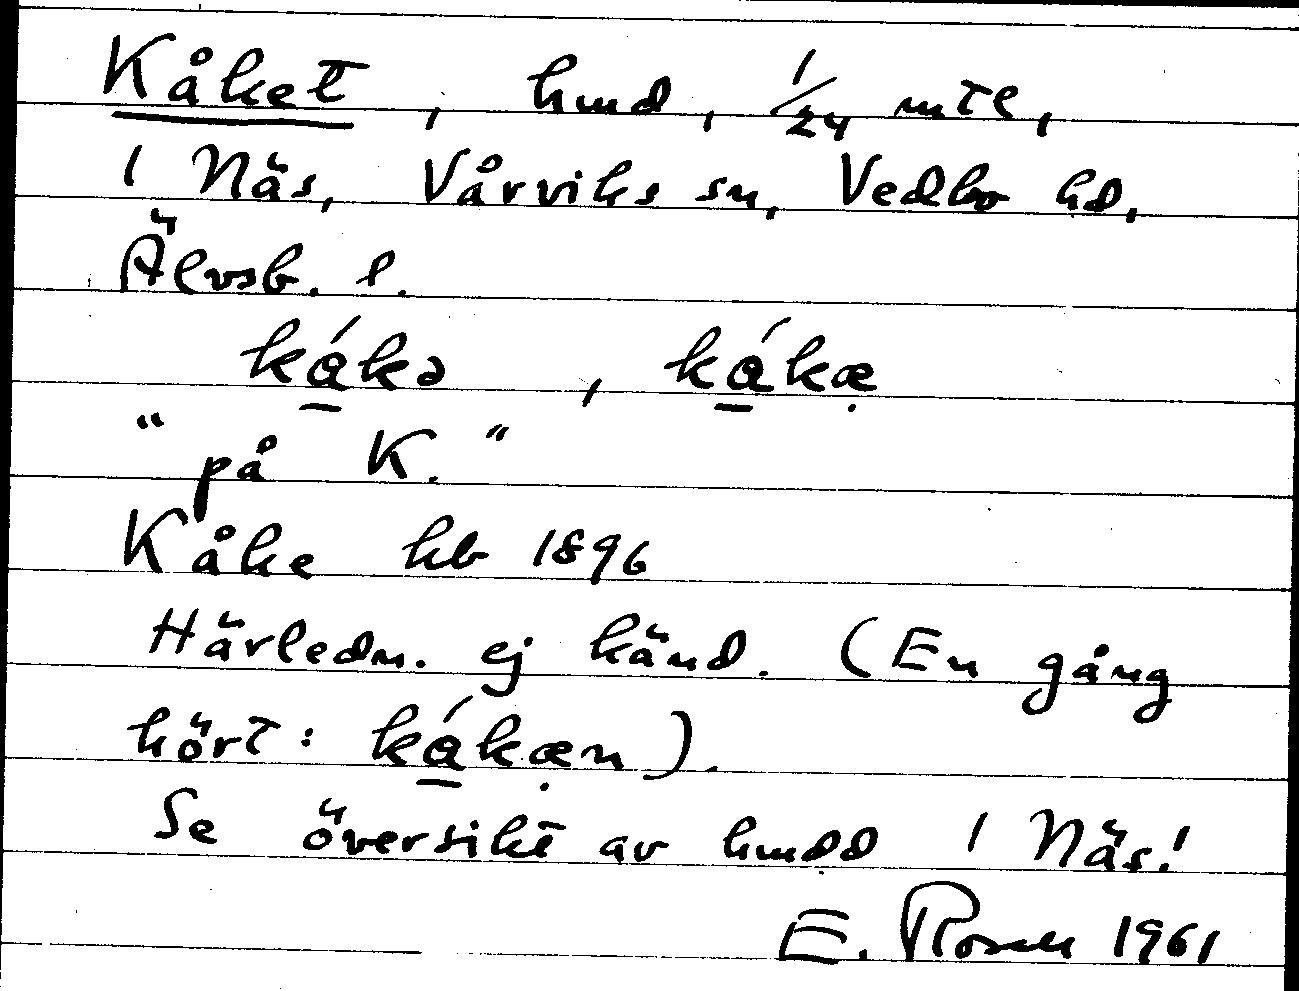 Kåket, hmd, 1/24 mtl,
i Näs, Vårviks sn, Vedbo hd,
Älvsb. l.
ká̱kə, ká̱kæ̣
"på K."
Kåke kb 1896
Härledn. ej känd. (En gång
hört: ká̱kæ̣n).
Se översikt av hmdd i Näs!
E. Rosell 1961